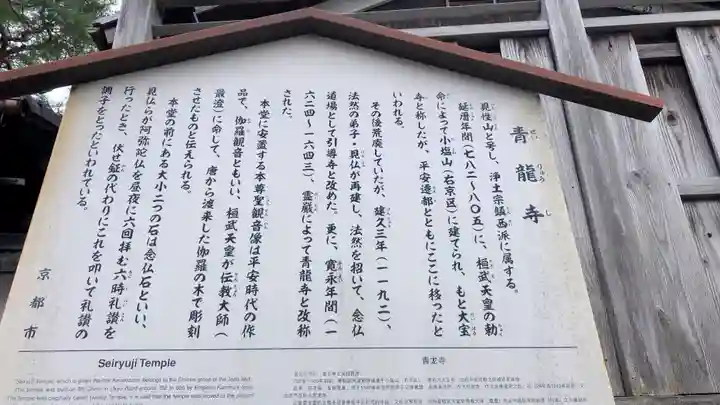 青龍寺
せい りゅう じ
見性山と号し、浄土宗鎮西派に属する。
延暦年間(七八二〜八〇五)に、桓武天皇の勅
命によって小塩山(右京区)に建てられ、もと大宝
寺と称したが、平安遷都とともにここに移ったと
いわれる。
その後荒廃していたが、建久三年(一一九二)、
法然の弟子・見仏が再建し、法然を招いて、念仏
道場として引導寺と改めた。更に、寛永年間(一
六二四〜一六四三)、霊巌によって青龍寺と改称
された。
本堂に安置する本尊聖観音像は平安時代の作
品で、伽羅観音ともいい、桓武天皇が伝教大師(
最澄)に命じて、唐から渡来した伽羅の木で彫刻
させたものと伝えられる。
本堂の前にある大小二つの石は念仏石といい、
見仏らが阿弥陀仏を昼夜に六回拝む六時礼讃を
行ったとき、伏せ鉦の代わりにこれを叩いて礼讃の
調子をとったといわれている。
京都市
Seiryuji Temple
青龙寺